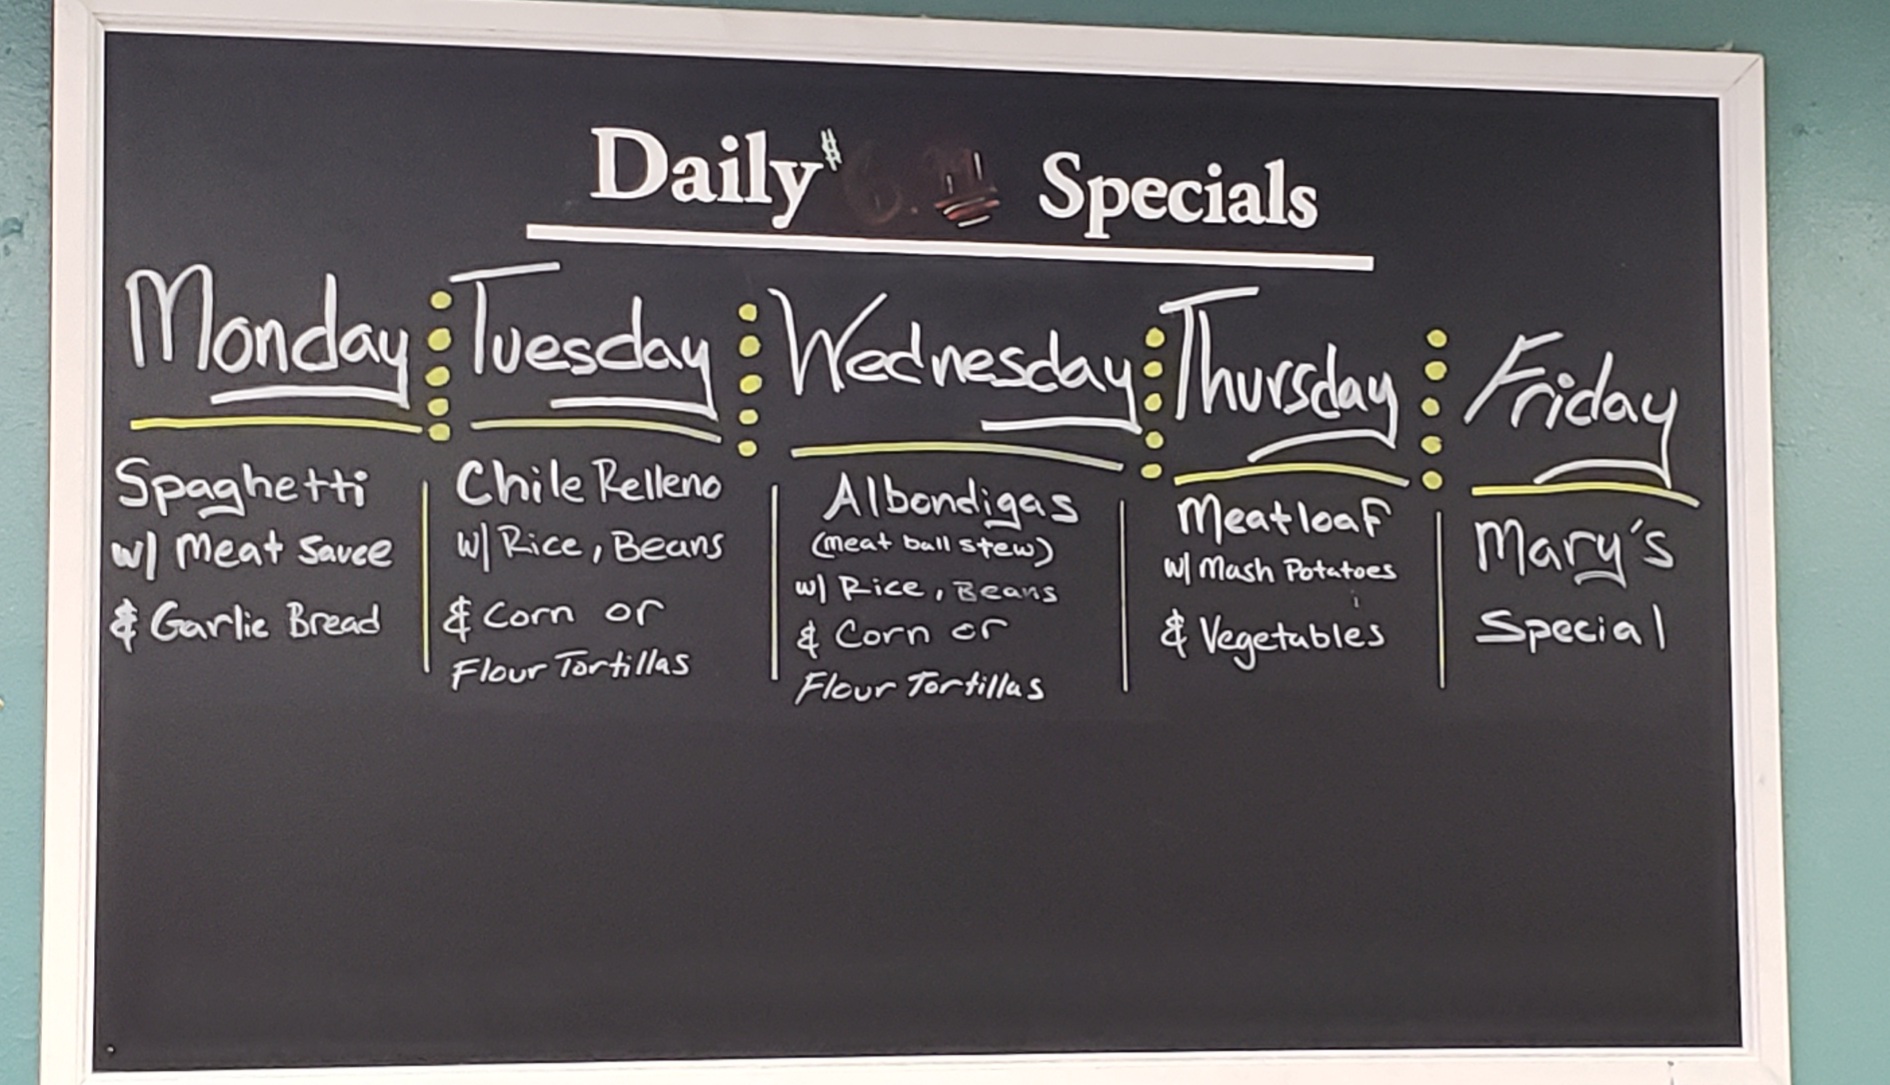 Daily $ Specials
Monday
Tuesday
Wednesday
Thursday
Friday
Spaghetti
w/ Meat Sauce
& Garlic Bread
Chile Relleno
w/ Rice, Beans
& Corn or
Flour Tortillas
Albondigas
(meat ball stew)
w/ Rice, Beans
& Corn or
Flour Tortillas
Meatloaf
w/ Mash Potatoes
& Vegetables
Mary's
Special